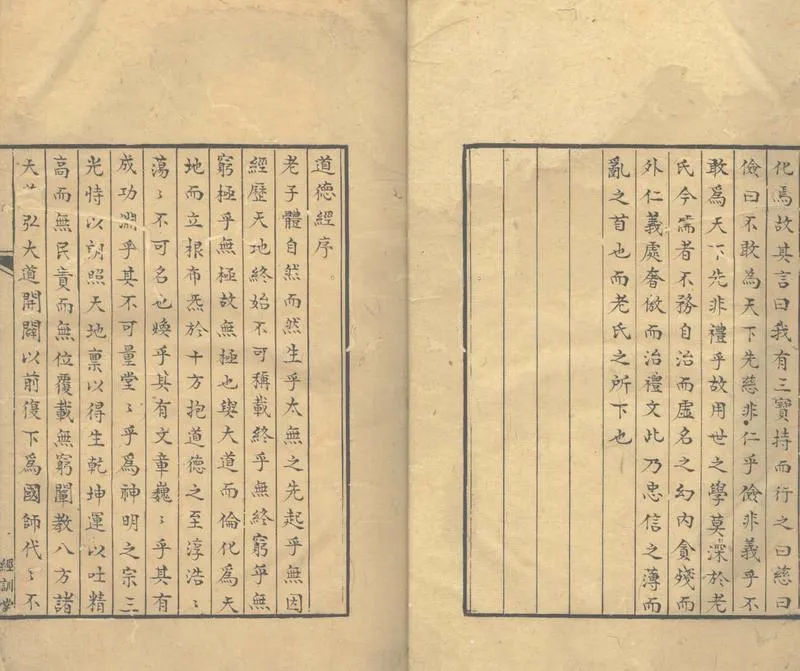 化焉故其言曰我有三寶持而行之曰慈曰
儉曰不敢為天下先慈非仁乎儉非義乎不
敢為天下先非禮乎故用世之學莫深於老
氏今儒者不務自治而虛名之幻內貪殘而
外仁義處奢傲而治禮文此乃忠信之薄而
亂之首也而老氏之所下也
道德經序
老子體自然而然生乎太無之先起乎無因
經歷天地終始不可稱載終乎無終窮乎無
窮極乎無極故無極也與大道而倫化為天
地而立根布炁於十方抱道德之至淳浩〻
蕩〻不可名也煥乎其有文章巍〻乎其有
成功淵乎其不可量堂〻乎為神明之宗三
光恃以朗照天地稟以得生乾坤運以吐精
高而無民貴而無位覆載無窮闡教八方諸
天 弘大道開闢以前復下為國師代〻不
經訓堂